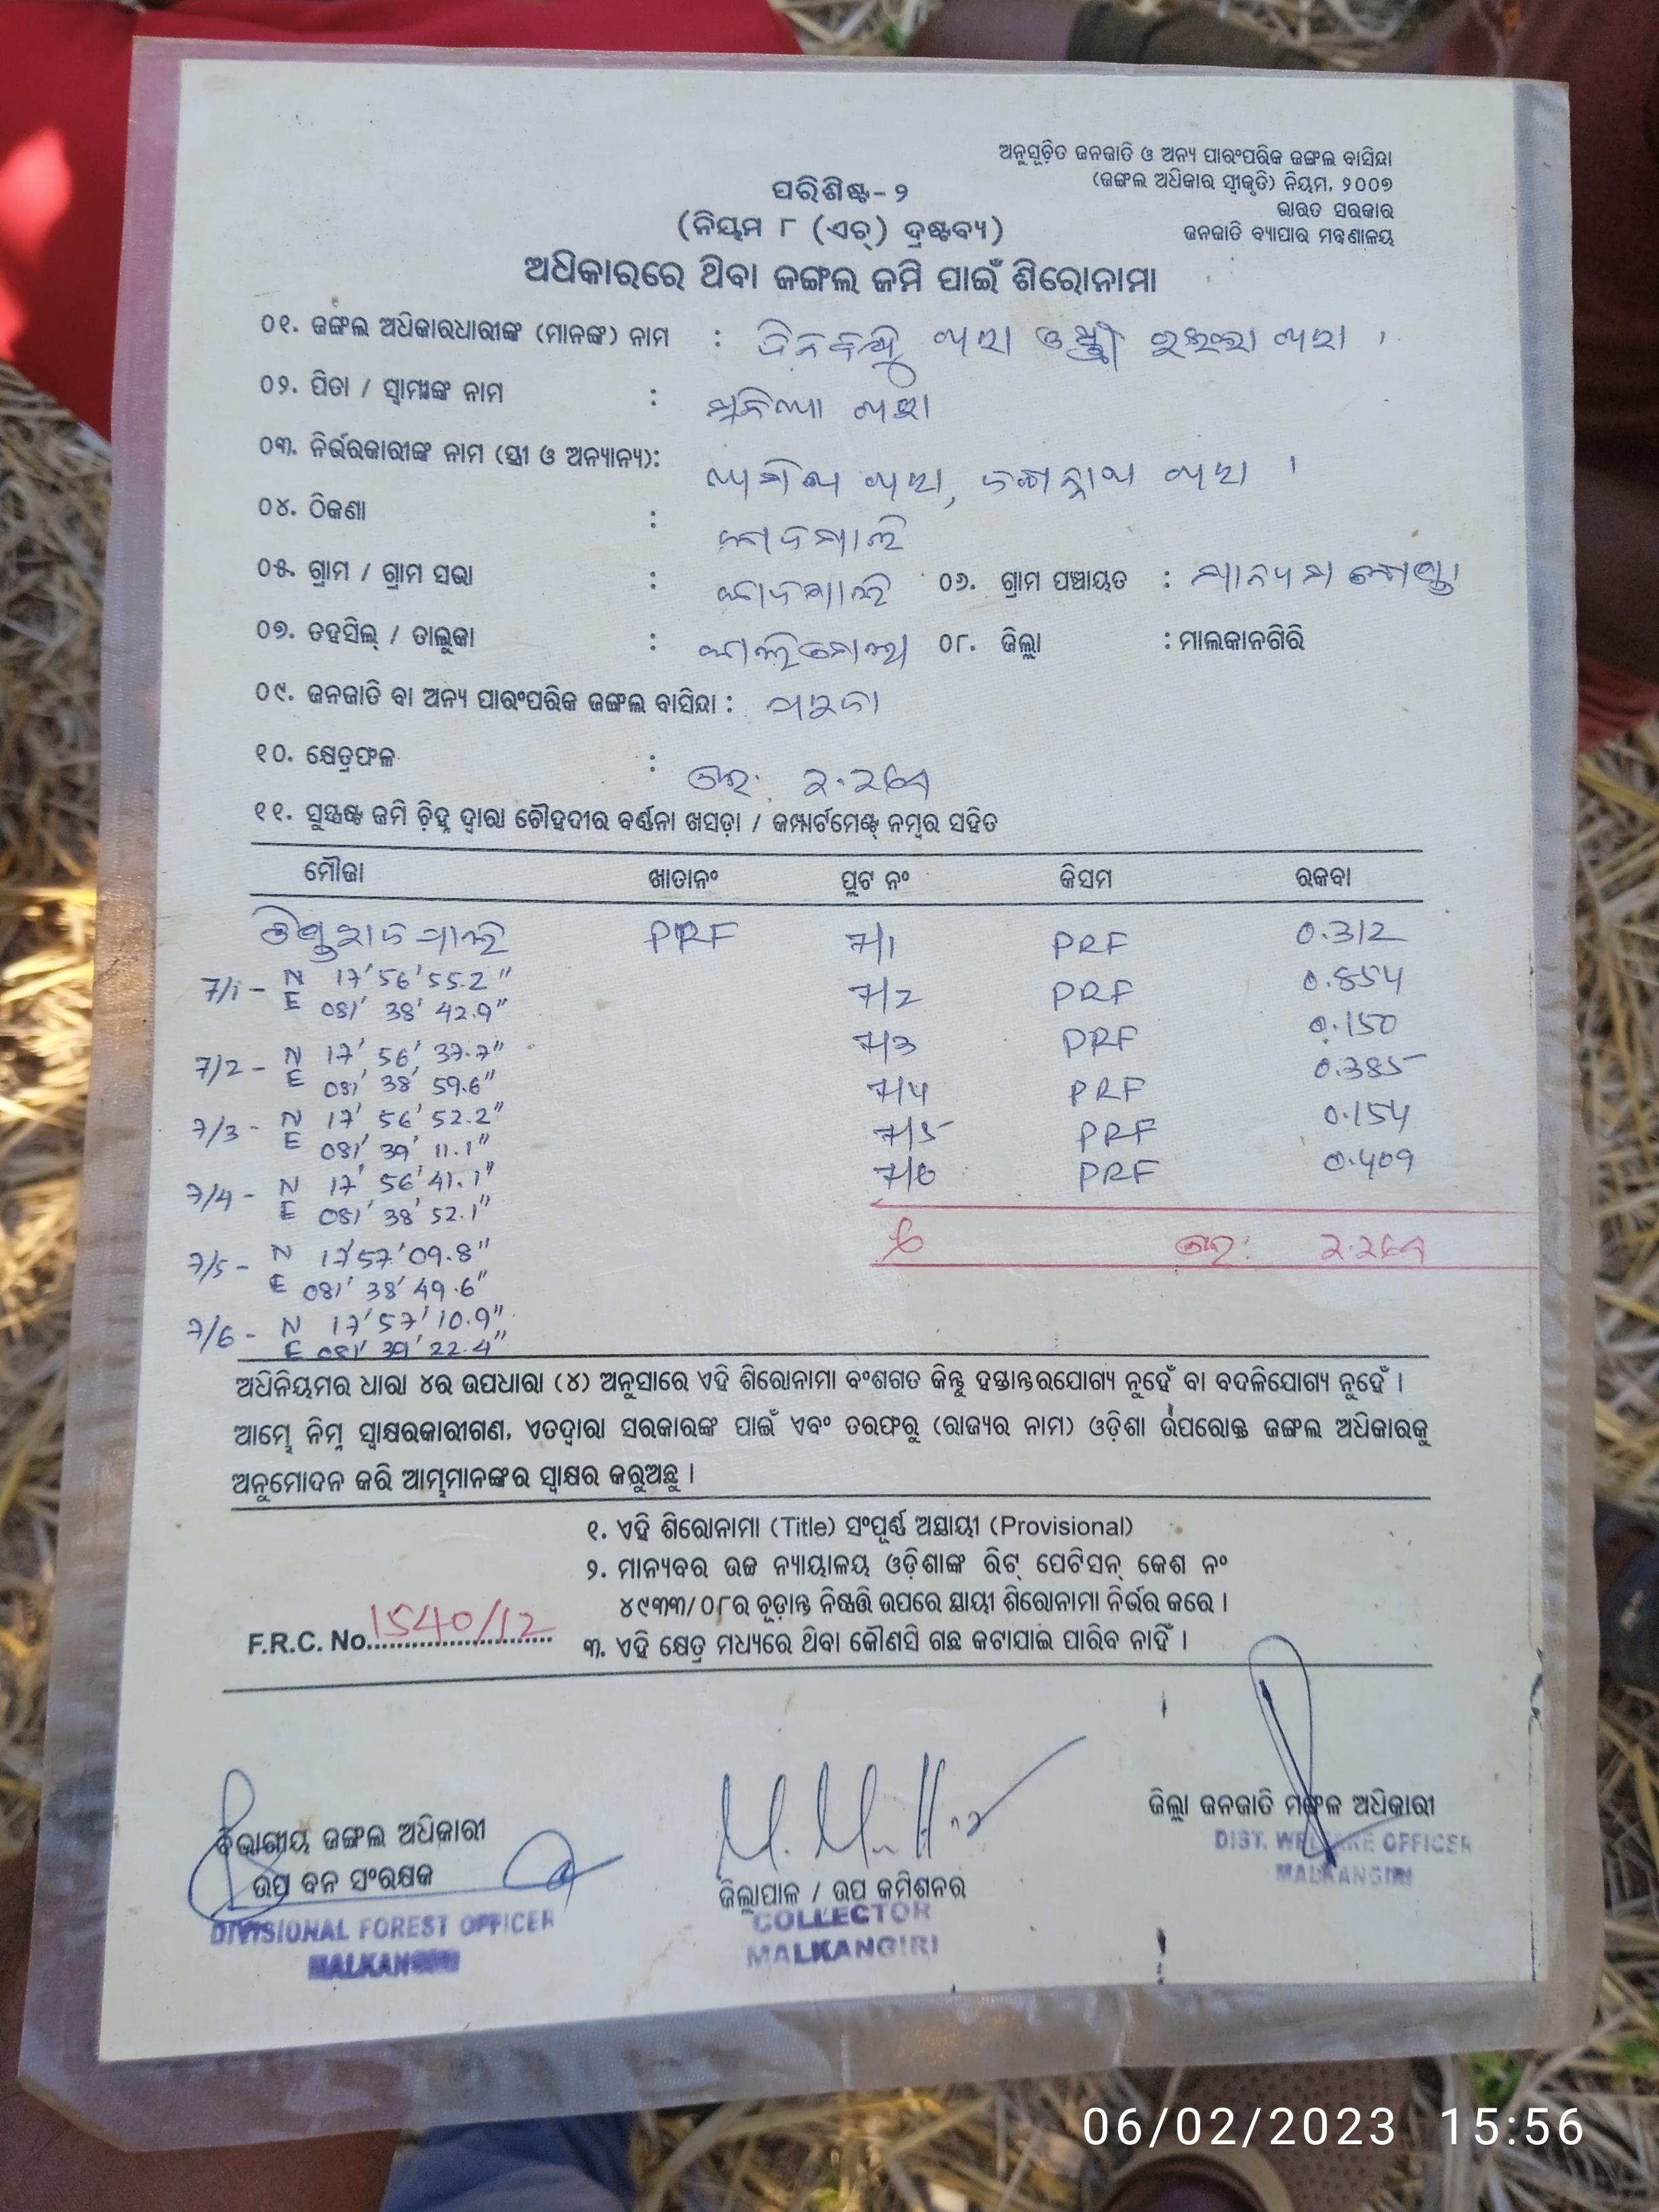 ଅନୁସୂଚିତ ଜନଜାତି ଓ ଅନ୍ୟ ପାରଂପରିକ ଜଙ୍ଗଲ ବାସିନ୍ଦା
(ଜଙ୍ଗଲ ଅଧିକାର ସ୍ୱୀକୃତି) ନିୟମ, ୨୦୦୭
ଭାରତ ସରକାର
ଜନଜାତି ବ୍ୟାପାର ମନ୍ତ୍ରଣାଳୟ
ପରିଶିଷ୍ଟ-୨
(ନିୟମ ୮ (ଏଚ୍) ଦ୍ରଷ୍ଟବ୍ୟ)
ଅଧିକାରରେ ଥିବା ଜଙ୍ଗଲ ଜମି ପାଇଁ ଶିରୋନାମା
୦୧. ଜଙ୍ଗଲ ଅଧିକାରଧାରୀଙ୍କ (ମାନଙ୍କ) ନାମ :
୦୨. ପିତା / ସ୍ୱାମୀଙ୍କ ନାମ :
୦୩. ନିର୍ଭରକାରୀଙ୍କ ନାମ (ସ୍ତ୍ରୀ ଓ ଅନ୍ୟାନ୍ୟ):
୦୪. ଠିକଣା :
୦୫. ଗ୍ରାମ / ଗ୍ରାମ ସଭା : ୦୬. ଗ୍ରାମ ପଞ୍ଚାୟତ :
୦୭. ତହସିଲ୍ / ତାଲୁକା : କାଲିମେଲା ୦୮. ଜିଲ୍ଲା : ମାଲକାନଗିରି
୦୯. ଜନଜାତି ବା ଅନ୍ୟ ପାରଂପରିକ ଜଙ୍ଗଲ ବାସିନ୍ଦା :
୧୦. କ୍ଷେତ୍ରଫଳ : ୨.୨୬୪
୧୧. ସୁସ୍ପଷ୍ଟ ଜମି ଚିହ୍ନ ଦ୍ୱାରା ଚୌହଦୀର ବର୍ଣ୍ଣନା ଖସଡ଼ା / କମ୍ପାର୍ଟମେଣ୍ଟ୍ ନମ୍ବର ସହିତ
ମୌଜା ଖାତାନଂ ପ୍ଲଟ ନଂ କିସମ ରକବା
PRF 7/1 PRF 0.312
7/1 - N 17' 56' 55.2"
E 081' 38' 42.9"
7/2 PRF 0.854
7/2 - N 17' 56' 37.7"
E 081' 38' 59.6"
7/3 PRF 0.150
7/3 - N 17' 56' 52.2"
E 081' 39' 11.1"
7/4 PRF 0.385
7/4 - N 17' 56' 41.1"
E 081' 38' 52.1"
7/5 PRF 0.154
7/5 - N 17' 57' 09.8"
E 081' 38' 49.6"
7/6 PRF 0.409
7/6 - N 17' 57' 10.9"
E 081' 39' 22.4"
୬ ୨.୨୬୪
ଅଧିନିୟମର ଧାରା ୪ର ଉପଧାରା (୪) ଅନୁସାରେ ଏହି ଶିରୋନାମା ବଂଶଗତ କିନ୍ତୁ ହସ୍ତାନ୍ତରଯୋଗ୍ୟ ନୁହେଁ ବା ବଦଳିଯୋଗ୍ୟ ନୁହେଁ ।
ଆମ୍ଭେ ନିମ୍ନ ସ୍ୱାକ୍ଷରକାରୀଗଣ, ଏତଦ୍ୱାରା ସରକାରଙ୍କ ପାଇଁ ଏବଂ ତରଫରୁ (ରାଜ୍ୟର ନାମ) ଓଡ଼ିଶା ଉପରୋକ୍ତ ଜଙ୍ଗଲ ଅଧିକାରକୁ
ଅନୁମୋଦନ କରି ଆମ୍ଭମାନଙ୍କର ସ୍ୱାକ୍ଷର କରୁଅଛୁ ।
୧. ଏହି ଶିରୋନାମା (Title) ସଂପୂର୍ଣ୍ଣ ଅସ୍ଥାୟୀ (Provisional)
୨. ମାନ୍ୟବର ଉଚ୍ଚ ନ୍ୟାୟାଳୟ ଓଡ଼ିଶାଙ୍କ ରିଟ୍ ପେଟିସନ୍ କେଶ ନଂ
୪୯୩୩/୦୮ର ଚୂଡ଼ାନ୍ତ ନିଷ୍ପତ୍ତି ଉପରେ ସ୍ଥାୟୀ ଶିରୋନାମା ନିର୍ଭର କରେ ।
F.R.C. No. 1540/12
୩. ଏହି କ୍ଷେତ୍ର ମଧ୍ୟରେ ଥିବା କୌଣସି ଗଛ କଟାଯାଇ ପାରିବ ନାହିଁ ।
ବିଭାଗୀୟ ଜଙ୍ଗଲ ଅଧିକାରୀ
ଉପ ବନ ସଂରକ୍ଷକ
DIVISIONAL FOREST OFFICER
MALKANGIRI
ଜିଲ୍ଲାପାଳ / ଉପ କମିଶନର
COLLECTOR
MALKANGIRI
ଜିଲ୍ଲା ଜନଜାତି ମଙ୍ଗଳ ଅଧିକାରୀ
DIST. WELFARE OFFICER
MALKANGIRI
06/02/2023 15:56